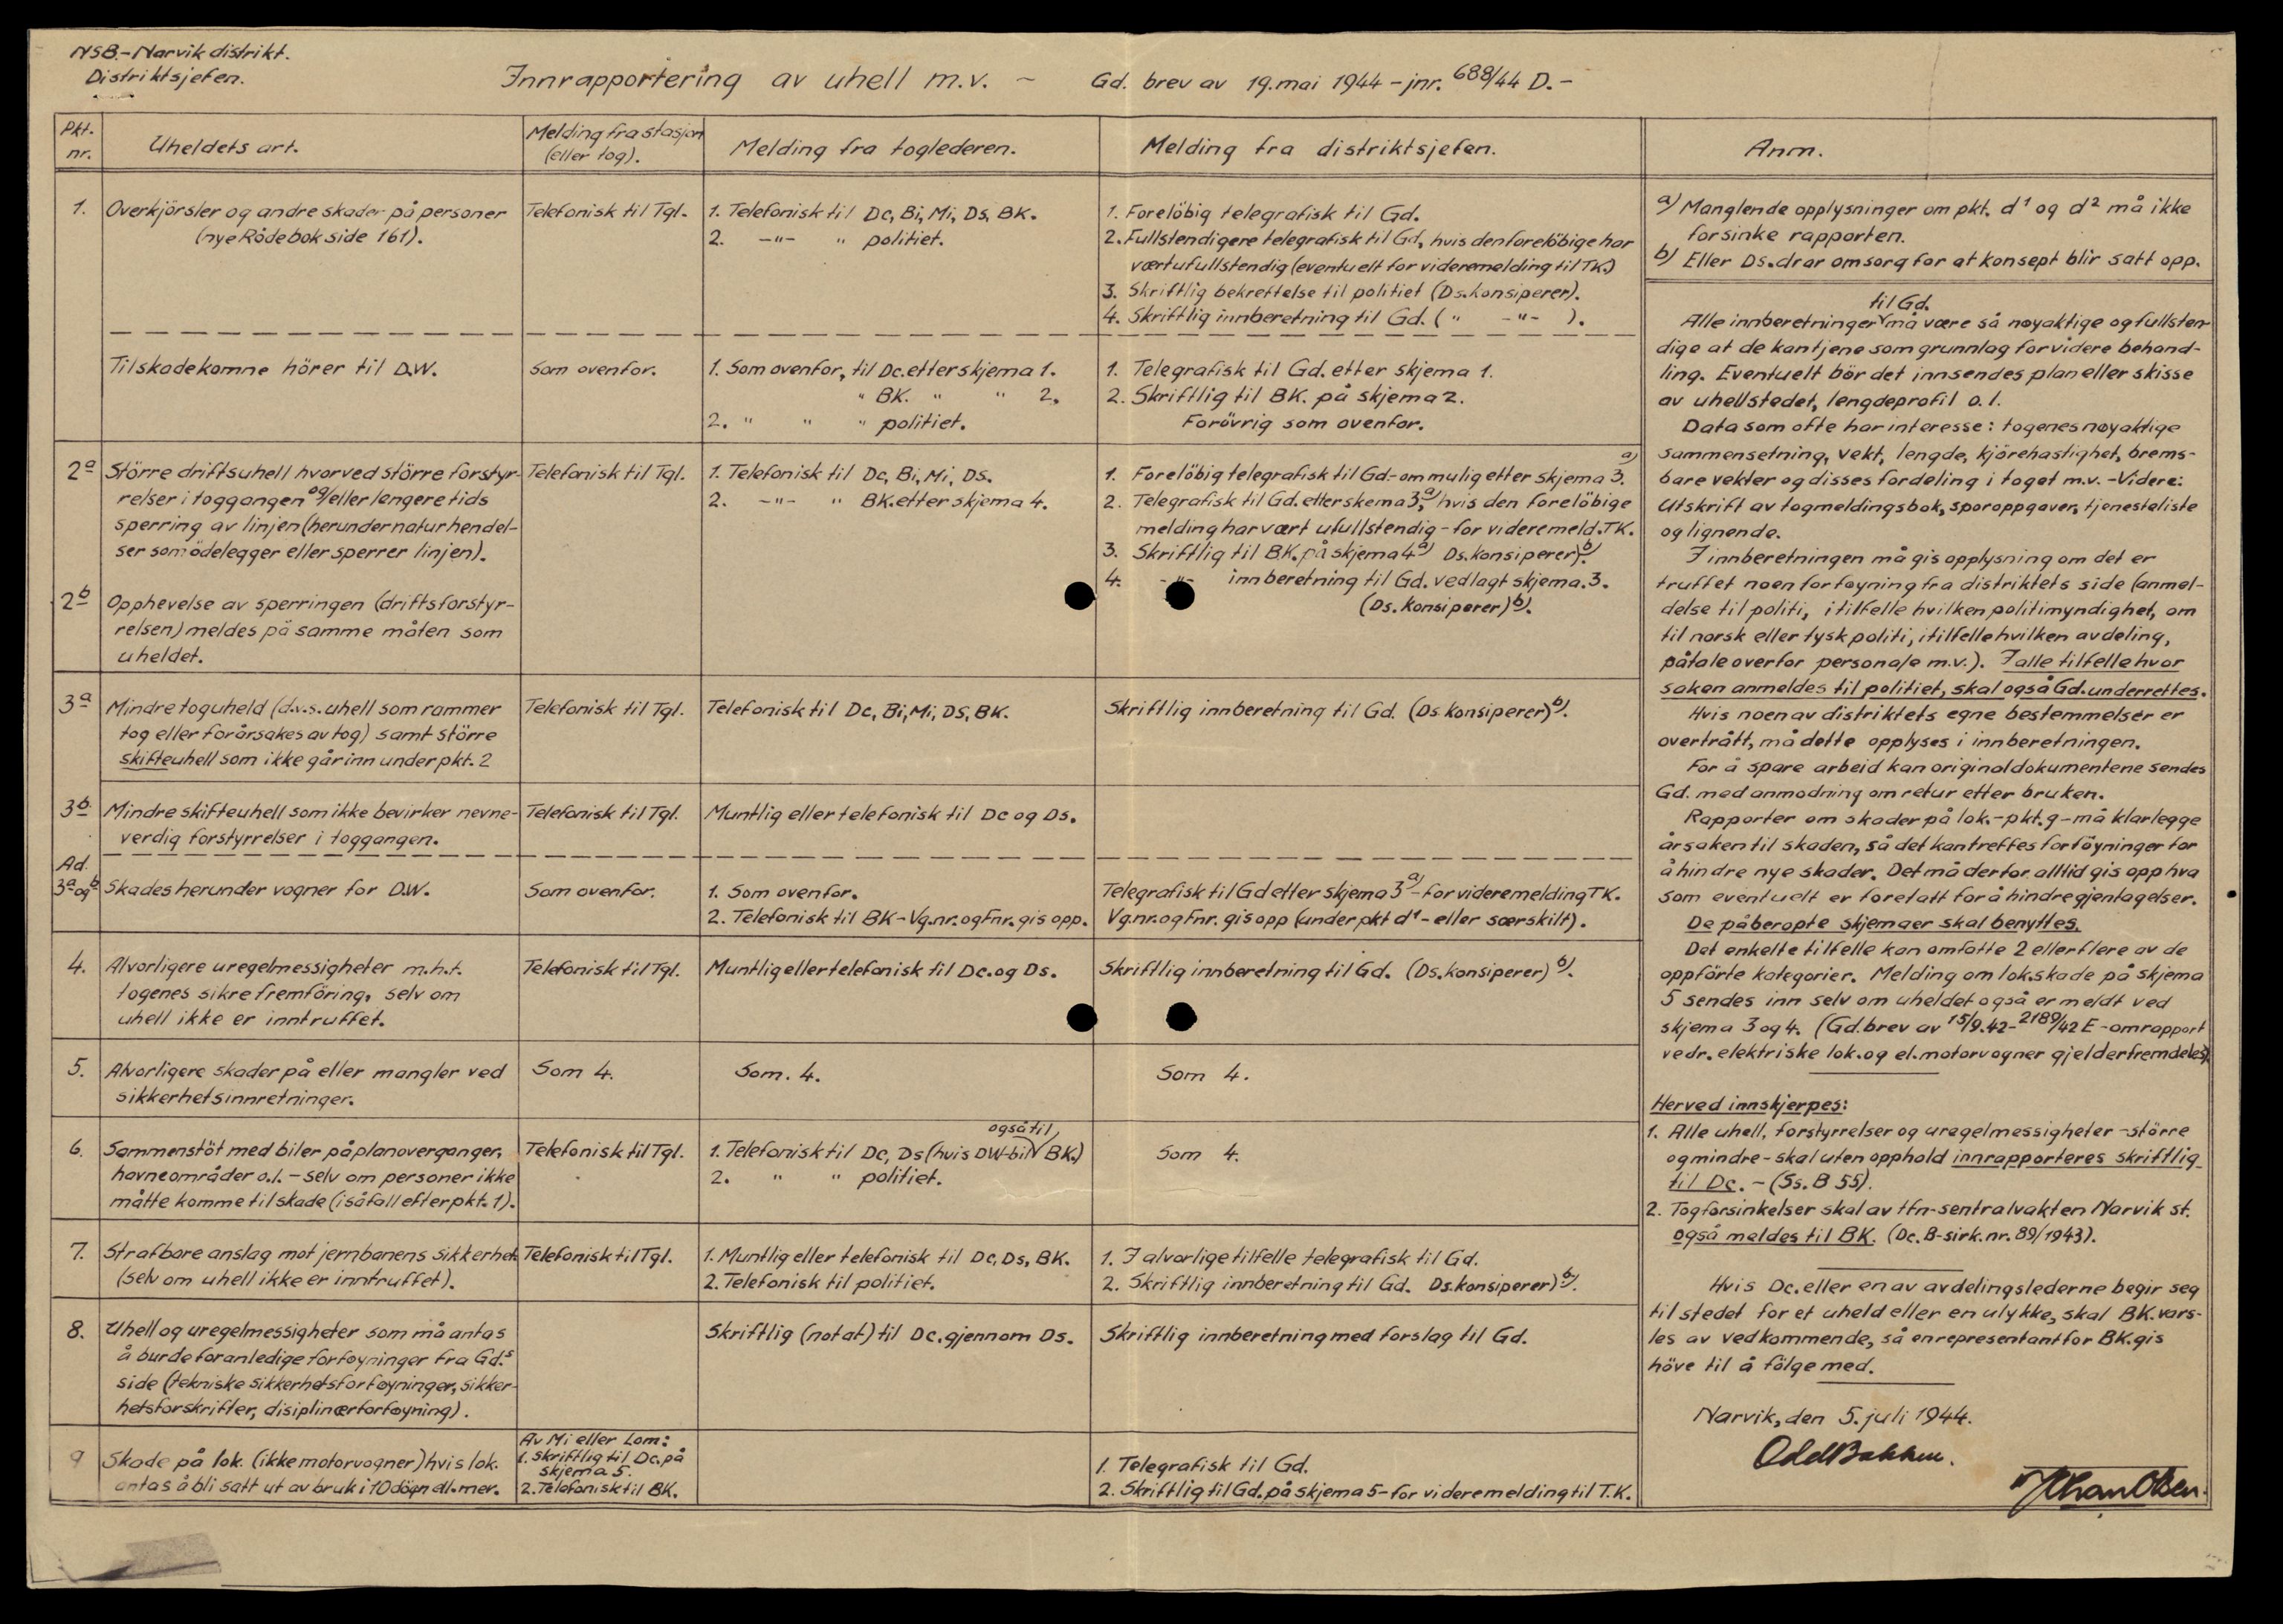 NSB.-Narvik distrikt.
Distriktsjefen.
Innrapportering av uhell m.v. - Gd. brev av 19.mai 1944 - jnr. 688/44 D.-
Pkt. nr.
Uheldets art.
Melding fra stasjon (eller tog).
Melding fra toglederen.
Melding fra distriktsjefen.
Anm.
1.
Overkjörsler og andre skader på personer
(nye Rödebok side 161).
Telefonisk til Tgl.
1. Telefonisk til Dc, Bi, Mi, Ds, BK.
2. -"- " politiet.
1. Forelöbig telegrafisk til Gd.
2. Fullstendigere telegrafisk til Gd, hvis den forelöbige har
vært ufullstendig (eventuelt for videremelding til TK.)
3. Skriftlig bekreftelse til politiet (Ds. konsiperer).
4. Skriftlig innberetning til Gd. ( " -"- ).
Tilskadekomne hörer til D.W.
Som ovenfor.
1. Som ovenfor, til Dc. etter skjema 1.
" BK. " " 2,
2. " " " politiet.
1. Telegrafisk til Gd. etter skjema 1.
2. Skriftlig til BK. på skjema 2.
Forövrig som ovenfor.
2a
Större driftsuhell hvorved större forstyr-
relser i toggangen og/eller lengere tids
sperring av linjen (herunder naturhendel-
ser som ödelegger eller sperrer linjen).
Telefonisk til Tgl.
1. Telefonisk til Dc, Bi, Mi, Ds.
2. -"- " BK. etter skjema 4.
1. Forelöbig telegrafisk til Gd.- om mulig etter skjema 3. a)
2. Telegrafisk til Gd. etter skema 3, a) hvis den forelöbige
melding har vært ufullstendig - for videremeld. TK.
3. Skriftlig til BK. på skjema 4 a) Ds. konsiperer) b).
4. -"- innberetning til Gd. vedlagt skjema. 3.
(Ds. konsiperer) b).
2b
Opphevelse av sperringen (driftsforstyr-
relsen) meldes på samme måten som
uheldet.
3a
Mindre toguheld (d.v.s. uhell som rammer
tog eller forårsakes av tog) samt större
skifteuhell som ikke går inn under pkt. 2
Telefonisk til Tgl.
Telefonisk til Dc, Bi, Mi, DS, BK.
Skriftlig innberetning til Gd. (Ds. konsiperer) b).
3b.
Mindre skifteuhell som ikke bevirker nevne-
verdig forstyrrelser i toggangen.
Telefonisk til Tgl.
Muntlig eller telefonisk til Dc og Ds.
Ad. 3a og b
Skades herunder vogner for D.W.
Som ovenfor.
1. Som ovenfor.
2. Telefonisk til BK - Vg.nr. og Fnr. gis opp.
Telegrafisk til Gd etter skjema 3 a) - for videremelding TK.
Vg.nr. og Fnr. gis opp (under pkt d1 - eller særskilt).
4.
Alvorligere uregelmessigheter m.h.t.
togenes sikre fremföring, selv om
uhell ikke er inntruffet.
Telefonisk til Tgl.
Muntlig eller telefonisk til Dc. og Ds.
Skriftlig innberetning til Gd. (Ds. konsiperer) b).
5.
Alvorligere skader på eller mangler ved
sikkerhetsinnretninger.
Som 4.
Som. 4.
Som 4.
6.
Sammenstöt med biler på planoverganger,
havneområder o.l. - selv om personer ikke
måtte komme til skade (i såfall efter pkt. 1).
Telefonisk til Tgl.
1. Telefonisk til Dc, Ds (hvis DW-bil også til BK.)
2. " " politiet.
Som 4.
7.
Strafbare anslag mot jernbanens sikkerhet
(selv om uhell ikke er inntruffet).
Telefonisk til Tgl.
1. Muntlig eller telefonisk til Dc, Ds, BK.
2. Telefonisk til politiet.
1. I alvorlige tilfelle telegrafisk til Gd.
2. Skriftlig innberetning til Gd. Ds. konsiperer) b).
8.
Uhell og uregelmessigheter som må antas
å burde foranledige forföyninger fra Gd.s
side (tekniske sikkerhetsforföyninger, sikker-
hetsforskrifter, disiplinærforföyning).
Skriftlig (notat) til Dc. gjennom Ds.
Skriftlig innberetning med forslag til Gd.
9
Skade på lok. (ikke motorvogner) hvis lok.
antas å bli satt ut av bruk i 10 dögn ell. mer.
Av Mi eller Lom:
1. Skriftlig til Dc. på
skjema 5.
2. Telefonisk til BK.
1. Telegrafisk til Gd.
2. Skriftlig til Gd. på skjema 5 - for videremelding til T.K.
a) Manglende opplysninger om pkt. d1 og d2 må ikke
forsinke rapporten.
b) Eller Ds. drar omsorg for at konsept blir satt opp.
Alle innberetninger til Gd. må være så nøyaktige og fullsten-
dige at de kan tjene som grunnlag for videre behand-
ling. Eventuelt bör det innsendes plan eller skisse
av uhellstedet, lengdeprofil o.l.
Data som ofte har interesse: togenes nøyaktige
sammensetning, vekt, lengde, kjörehastighet, brems-
bare vekter og disses fordeling i toget m.v. - Videre:
Utskrift av togmeldingsbok, sporoppgaver, tjenesteliste
og lignende.
I innberetningen må gis opplysning om det er
truffet noen forføyning fra distriktets side (anmel-
delse til politi, i tilfelle hvilken politimyndighet, om
til norsk eller tysk politi, i tilfelle hvilken avdeling,
påtale overfor personale m.v.). I alle tilfelle hvor
saken anmeldes til politiet, skal også Gd. underrettes.
Hvis noen av distriktets egne bestemmelser er
overtrått, må dette opplyses i innberetningen.
For å spare arbeid kan originaldokumentene sendes
Gd. med anmodning om retur etter bruken.
Rapporter om skader på lok. - pkt. 9 - må klarlegge
årsaken til skaden, så det kan treffes forföyninger for
å hindre nye skader. Det må derfor alltid gis opp hva
som eventuelt er foretatt for å hindre gjentagelser.
De påberopte skjemaer skal benyttes.
Det enkelte tilfelle kan omfatte 2 eller flere av de
oppförte kategorier. Melding om lok.skade på skjema
5 sendes inn selv om uheldet også er meldt ved
skjema 3 og 4. (Gd. brev av 15/9.42 - 2189/42 E - om rapport
vedr. elektriske lok. og el. motorvogner gjelder fremdeles).
Herved innskjerpes:
1. Alle uhell, forstyrrelser og uregelmessigheter - större
og mindre - skal uten opphold innrapporteres skriftlig
til Dc. - (Ss. B 55).
2. Togforsinkelser skal av tfn-sentralvakten Narvik st.
også meldes til BK. (Dc. B-sirk. nr. 89/1943).
Hvis Dc. eller en av avdelingslederne begir seg
til stedet for et uheld eller en ulykke, skal BK. vars-
les av vedkommende, så en representant for BK. gis
höve til å fölge med.
Narvik, den 5. juli 1944.
Odd Bakken.
Johan Olsen.